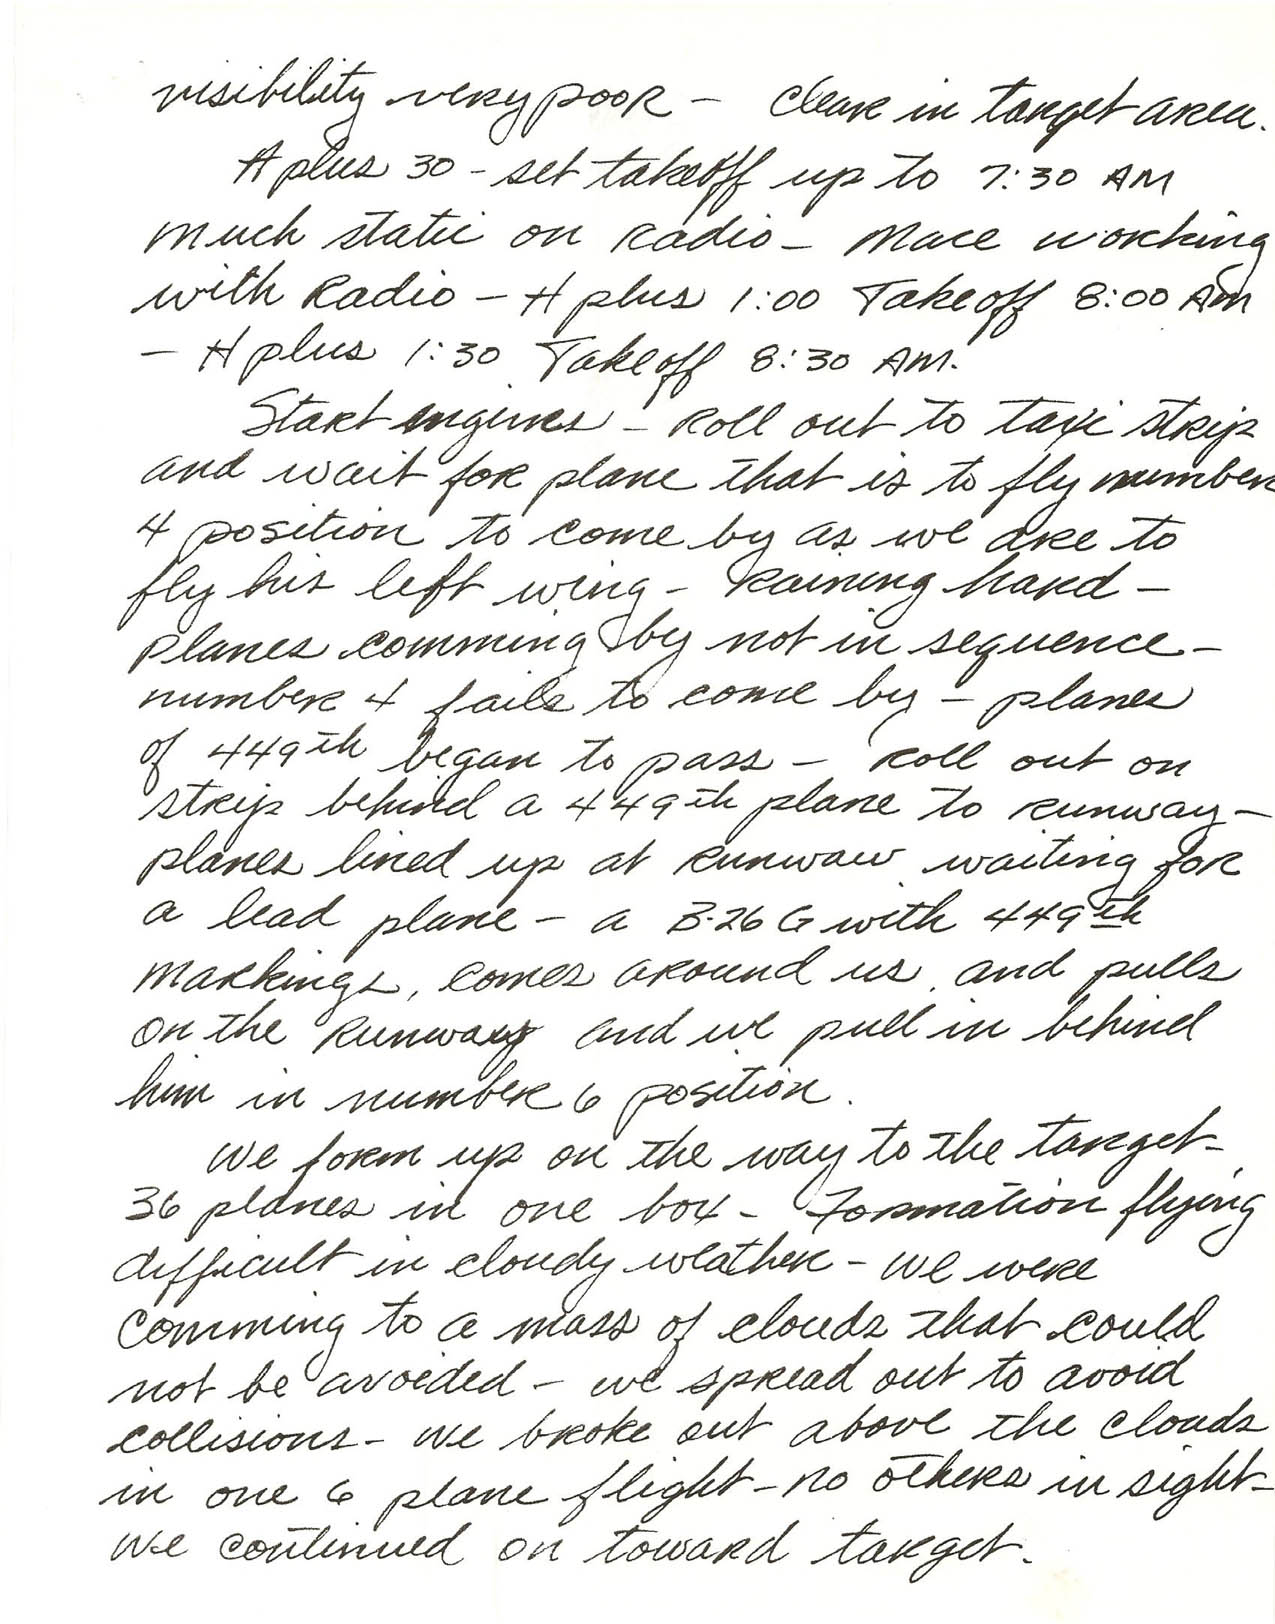 visibility very poor – Clear in target area.
H plus 30 – set takeoff up to 7:30 AM
Much static on Radio – Mace working
with Radio – H plus 1:00 Takeoff 8:00 AM
– H plus 1:30 Takeoff 8:30 AM.
Start engines – Roll out to taxi strip
and wait for plane that is to fly number
4 position to come by as we are to
fly his left wing – Raining hard –
planes comming by not in sequence –
number 4 fails to come by – planes
of 449th began to pass – Roll out on
strip behind a 449th plane to runway –
planes lined up at runwaw waiting for
a lead plane – a B-26 G with 449th
markings, comes around us and pulls
on the runway and we pull in behind
him in number 6 position.
We form up on the way to the target –
36 planes in one box – Formation flying
difficult in cloudy weather – We were
comming to a mass of clouds that could
not be avoided – we spread out to avoid
collisions – We broke out above the clouds
in one 6 plane flight – no others in sight –
We continued on toward target.